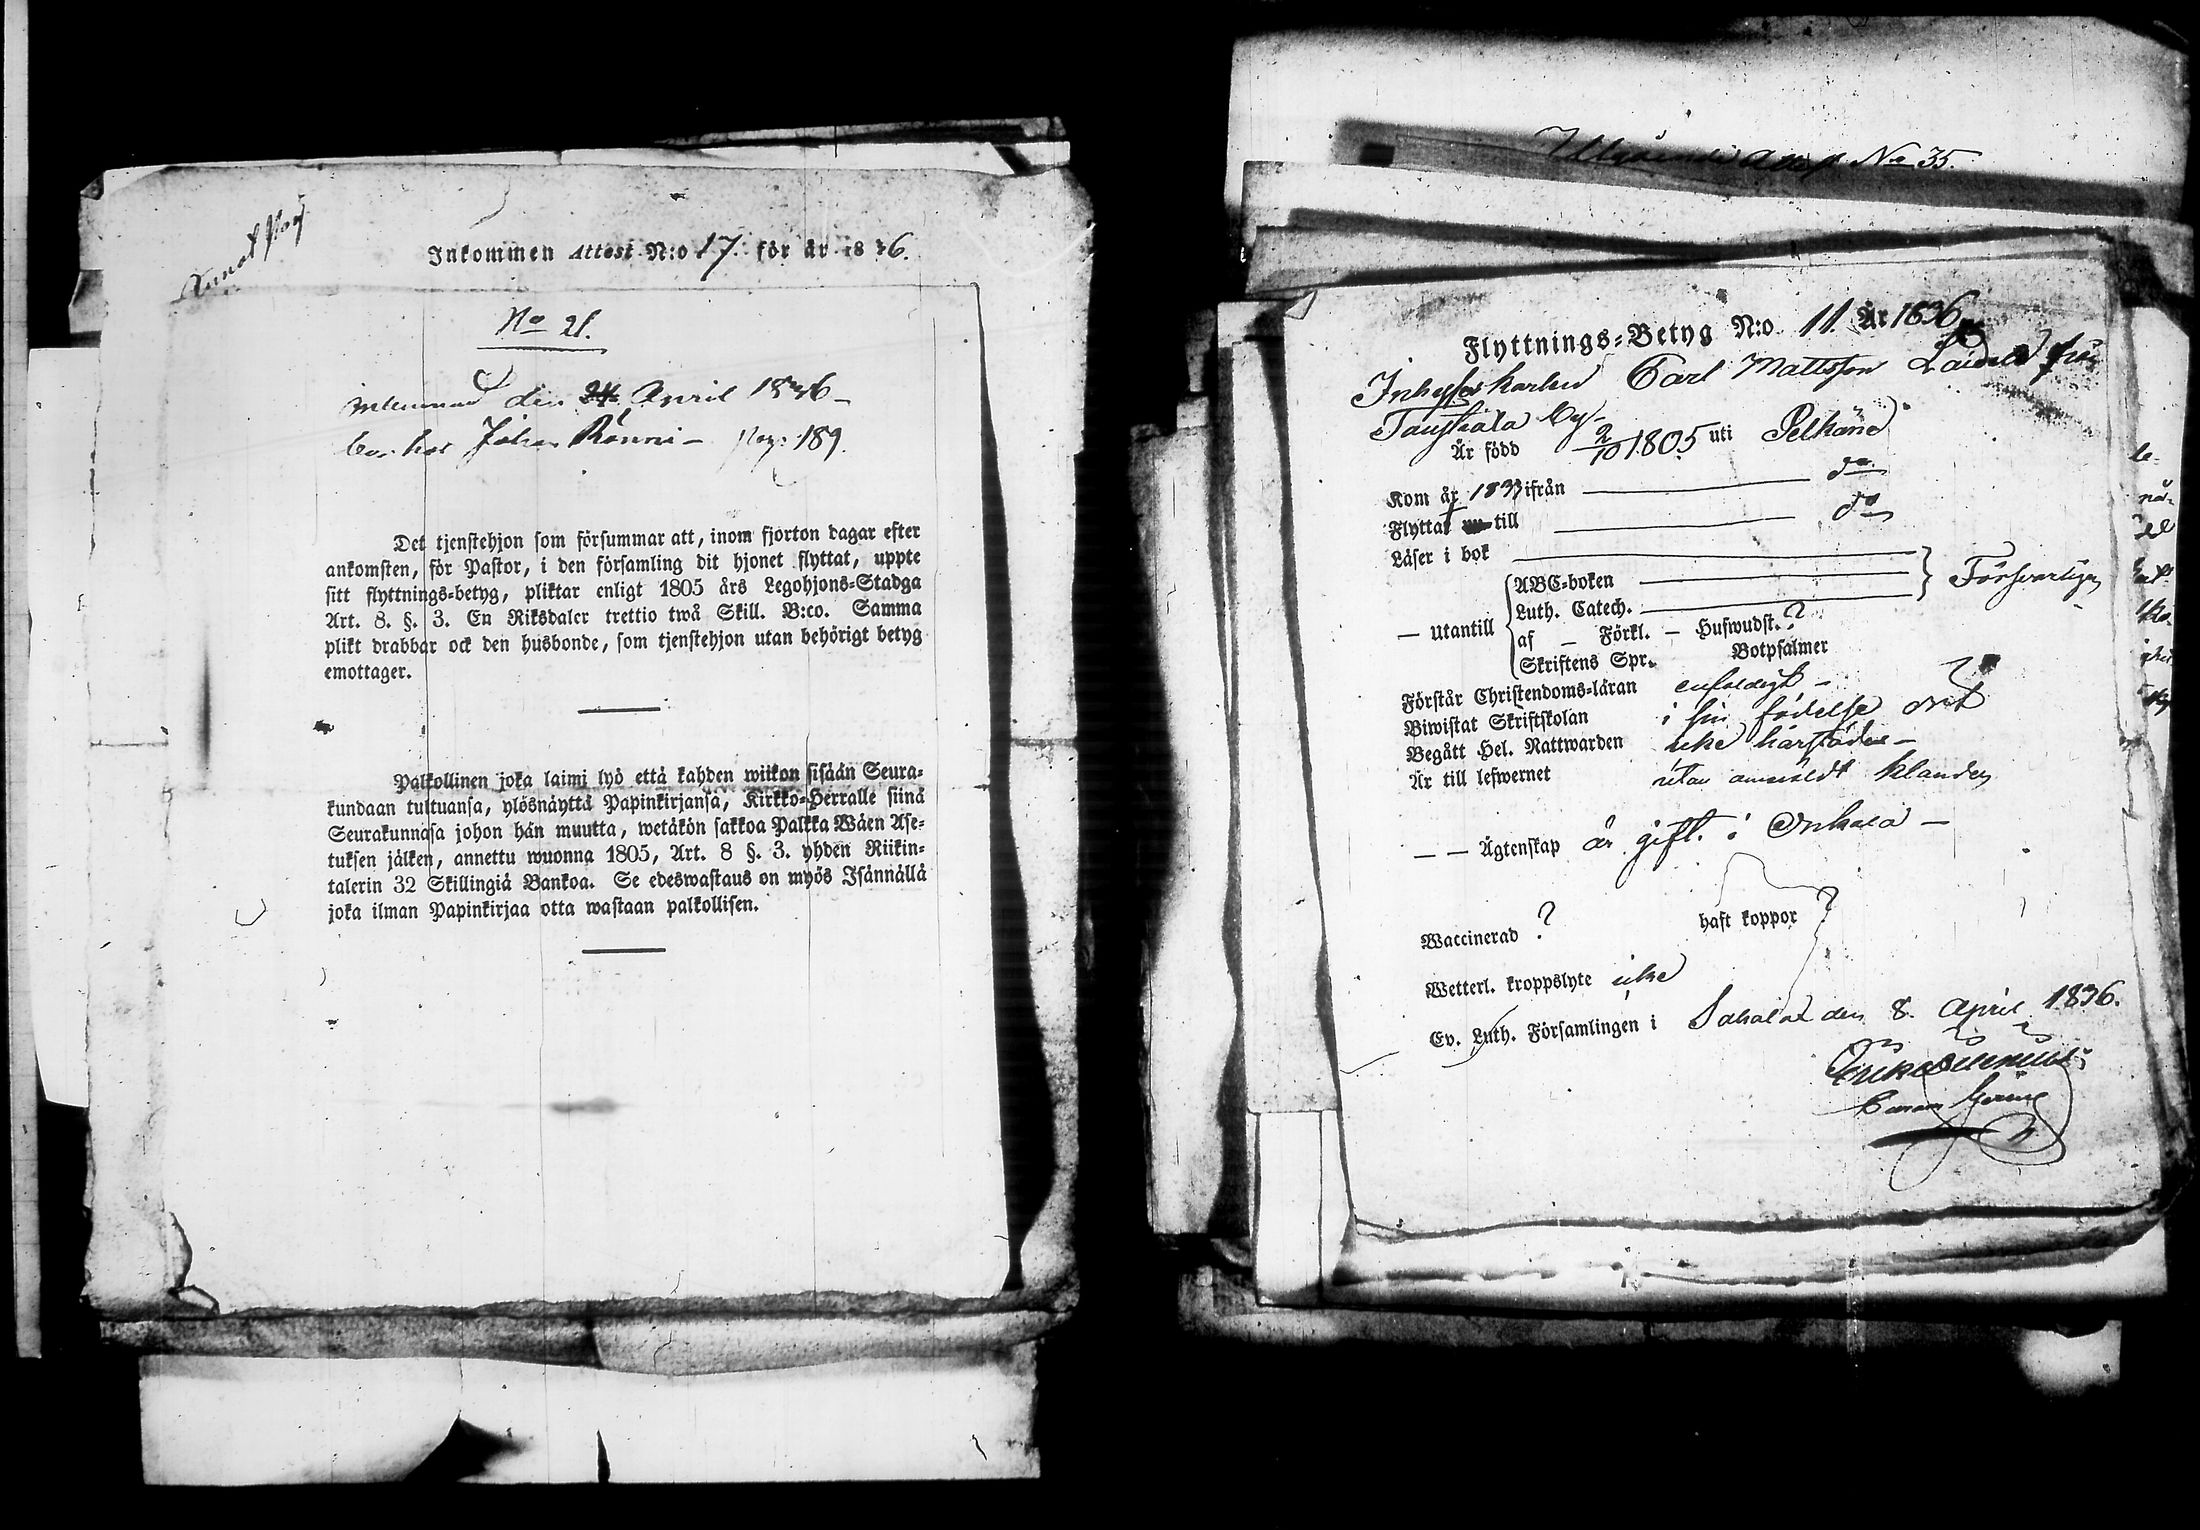 Inkommen Attest N:o 17. för år 1836.
No 21.
den 24 April 1836 –
bor hos Johan Rönni – pag: 189.
Det tjenstehjon som försummar att, inom fjorton dagar efter
ankomsten, för Pastor, i den församling dit hjonet flyttat, uppte
sitt flyttnings=betyg, pliktar enligt 1805 års Legohjons=Stadga
Art. 8. §. 3. En Riksdaler trettio twå Skill. B:co. Samma
plikt drabbar ock den husbonde, som tjenstehjon utan behörigt betyg
emottager.
Palkollinen joka laimi lyö että kahden wiikon sisään Seura=
kundaan tultuansa, ylösnäyttä Papinkirjansa, Kirkko=Herralle siinä
Seurakunnasa johon hän muutta, wetäkön sakkoa Palkka Wäen Ase=
tuksen jälken, annettu wuonna 1805, Art. 8 §. 3. yhden Riikin=
talerin 32 Skillingiä Bankoa. Se edeswastaus on myös Isännällä
joka ilman Papinkirjaa otta wastaan palkollisen.
Utgående Att. No 35.
Flyttnings=Betyg N:o 11. År 1836
Inhyses karlen Carl Mattsson från
by
Är född 2/10 1805 uti Pelkäne
Kom år 1833 ifrån — do
Flyttar till — do
Läser i bok
ABC=boken
Luth. Catech. Försvarligen
— Utantill af — Förkl. — Huswudst. ?
Skriftens Spr. Botpsalmer
Förstår Christendoms=läran enfaldigt –
Biwistat Skriftskolan i sin födelse ort
Begått Hel. Nattwarden icke härstädes –
Är till lefwernet utan anmäldt klander
— — Ägtenskap är gift. i Onkala –
Waccinerad ? haft koppor ?
Wetterl. kroppslyte icke
Ev. Luth. Församlingen i Sahalax den 8. April 1836.